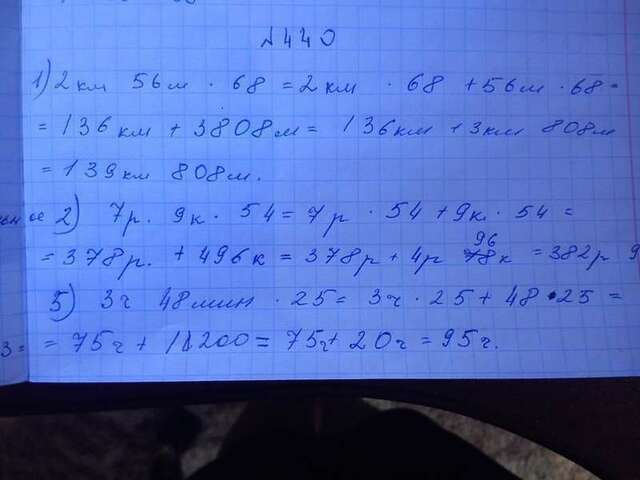 №440
1) 2 км 56 м · 68 = 2 км · 68 + 56 м · 68 =
= 136 км + 3808 м = 136 км + 3 км 808 м
= 139 км 808 м.
2) 7р. 9к · 54 = 7р · 54 + 9к · 54 =
= 378р. + 496к = 378р + 4р 96к = 382р 9
5) 3ч 48мин · 25 = 3ч · 25 + 48 · 25 =
= 75ч + 1200 = 75ч + 20ч = 95ч.
3 =